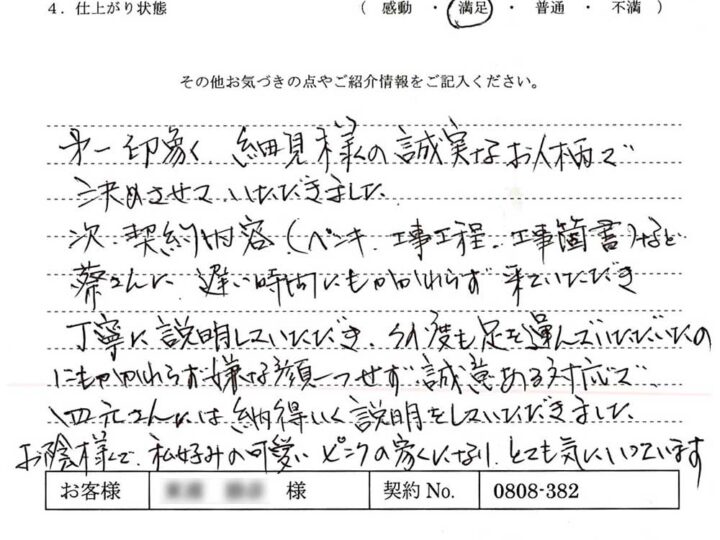 4. 仕上がり状態 ( 感動 ・ 満足 ・ 普通 ・ 不満 )
その他お気づきの点やご紹介情報をご記入ください。
第一印象く、細見様の誠実なお人柄で
決めさせていただきました。
次、契約内容(ペンキ、工事工程、工事箇書)など
蔡さんに、遅い時間にもかかわらず来ていただき
丁寧に説明していただき、何度も足を運んでいただいたの
にもかかわらず嫌な顔一つせず誠意ある対応で
四元さんには納得いく説明をしていただきました。
お陰様で、私好みの可愛いピンクの家になり、とても気にいっています
お客様 様 契約 No. 0808-382